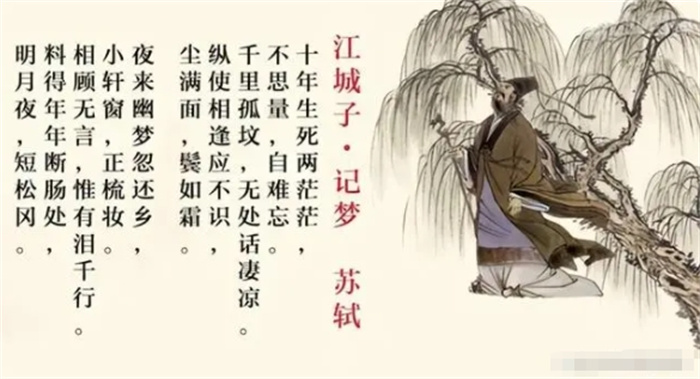 江城子·记梦 苏轼
十年生死两茫茫，
不思量，自难忘。
千里孤坟，无处话凄凉。
纵使相逢应不识，
尘满面，鬓如霜。
夜来幽梦忽还乡，
小轩窗，正梳妆。
相顾无言，惟有泪千行。
料得年年断肠处，
明月夜，短松冈。